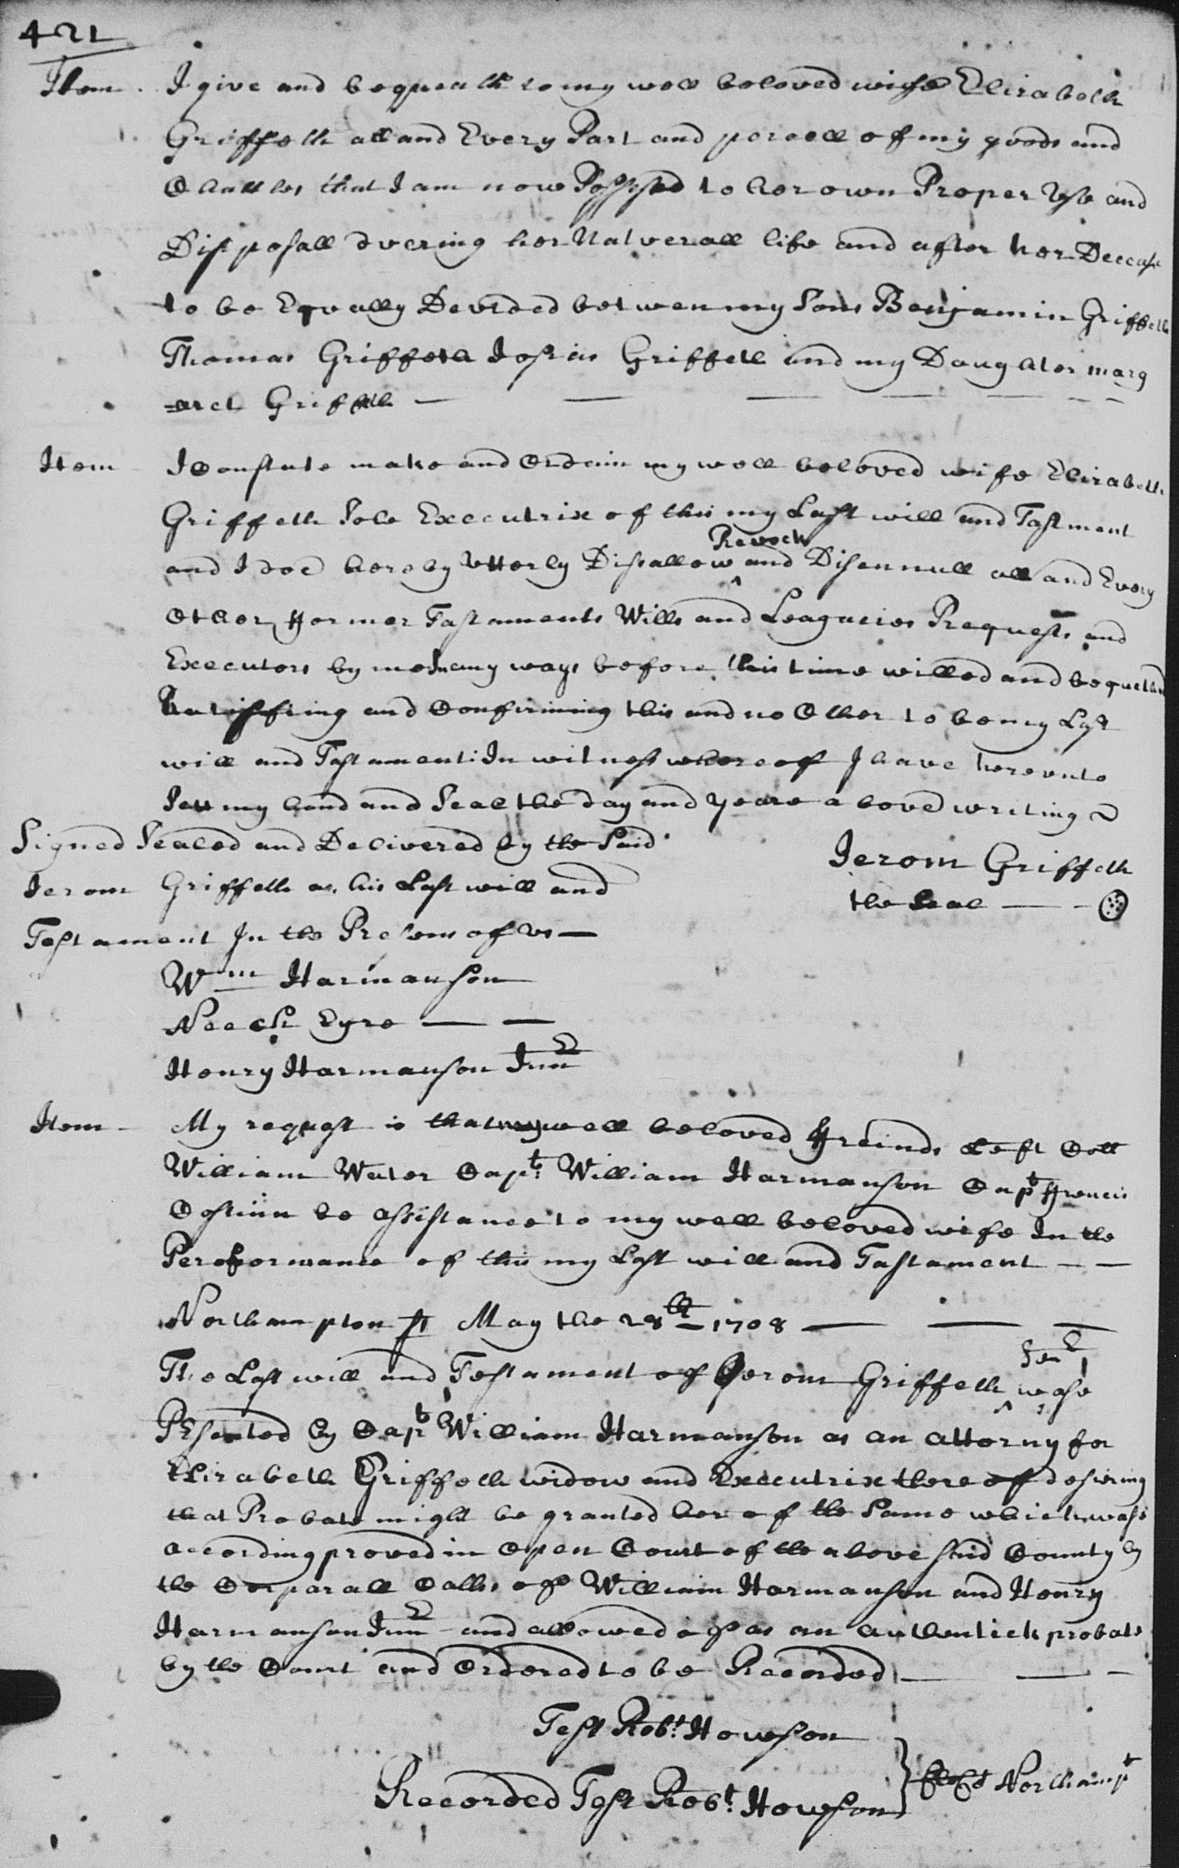 421
Item I give and bequeath to my well beloved wife Elizabeth
Griffeth all and Every Part and parcell of my goods and
Chattles that I am now Possesed to her own Proper Use and
Disposall dvering her Natverall life and after her Decease
to be Eqvally Devided between my Sons Benjamin Griffeth
Thomas Griffeth Josias Griffeth and my Daughter marg
=aret Griffeth
Item I Constute make and Ordein my well beloved wife Elizabeth
Griffeth Sole Executrix of this my Last will and Tastment
and I doe hereby Vtterly Disallow Revock and Disennull all and Every
Other former Tastaments Wills and Leagacies Requests and
Executors by me in any ways before this time willed and bequethed
Ratiffiing and Confirming this and no Other to be my Last
will and Tastament: In witness whereof I have herevnto
Sett my hand and Seal the day and yeare above writing
Signed Sealed and Delivered by the Said
Jerom Griffeth as his Last will and
Testament In the Presens of vs
Jerom Griffeth
the Seal
Wm Harmanson
Neech Eyre
Henry Harmanson Junr
Item My request is that my well beloved freinds Left Coll
William Water Capt William Harmanson Capt francis
Costinn be assistance to my well beloved wife In the
Peroformance of this my Last will and Tastament
Northampton ss May the 28th 1708
The Last will and Testament of Jerom Griffeth Senr wase
Psented by Capt William Harmanson as an attorny for
Elizabeth Griffeth widow and Executrix there of desiring
that Probate might be granted her of the Same which wase
according proved in Open Court of the above said County by
the Corparall Oathes of William Harmanson and Henry
Harmanson Junr and allowed of as an authentick probate
by the Court and Ordered to be Recorded
Test Robt Howson
Recorded Test Robt Howson } Cl Ct Northampt